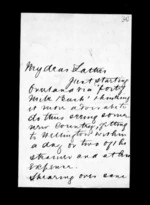 My dear Father
Just starting
overland via "forty
mile Bush" thinking
it more advisable to
do this seeing some
new Country, & getting
to Wellington within
a day or two of the
steamer and at less
expense.
Shearing over some